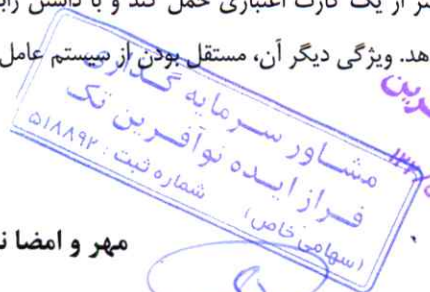 سر از یک کارت اعتباری حمل کند و با داشتن راب
هد. ویژگی دیگر آن، مستقل بودن از سیستم عامل
رین
مشاور سرمایه گذاری
فراز ایده نوآفرین تک
(سهامی خاص)
شماره ثبت: ۵۱۸۸۹۲
مهر و امضا